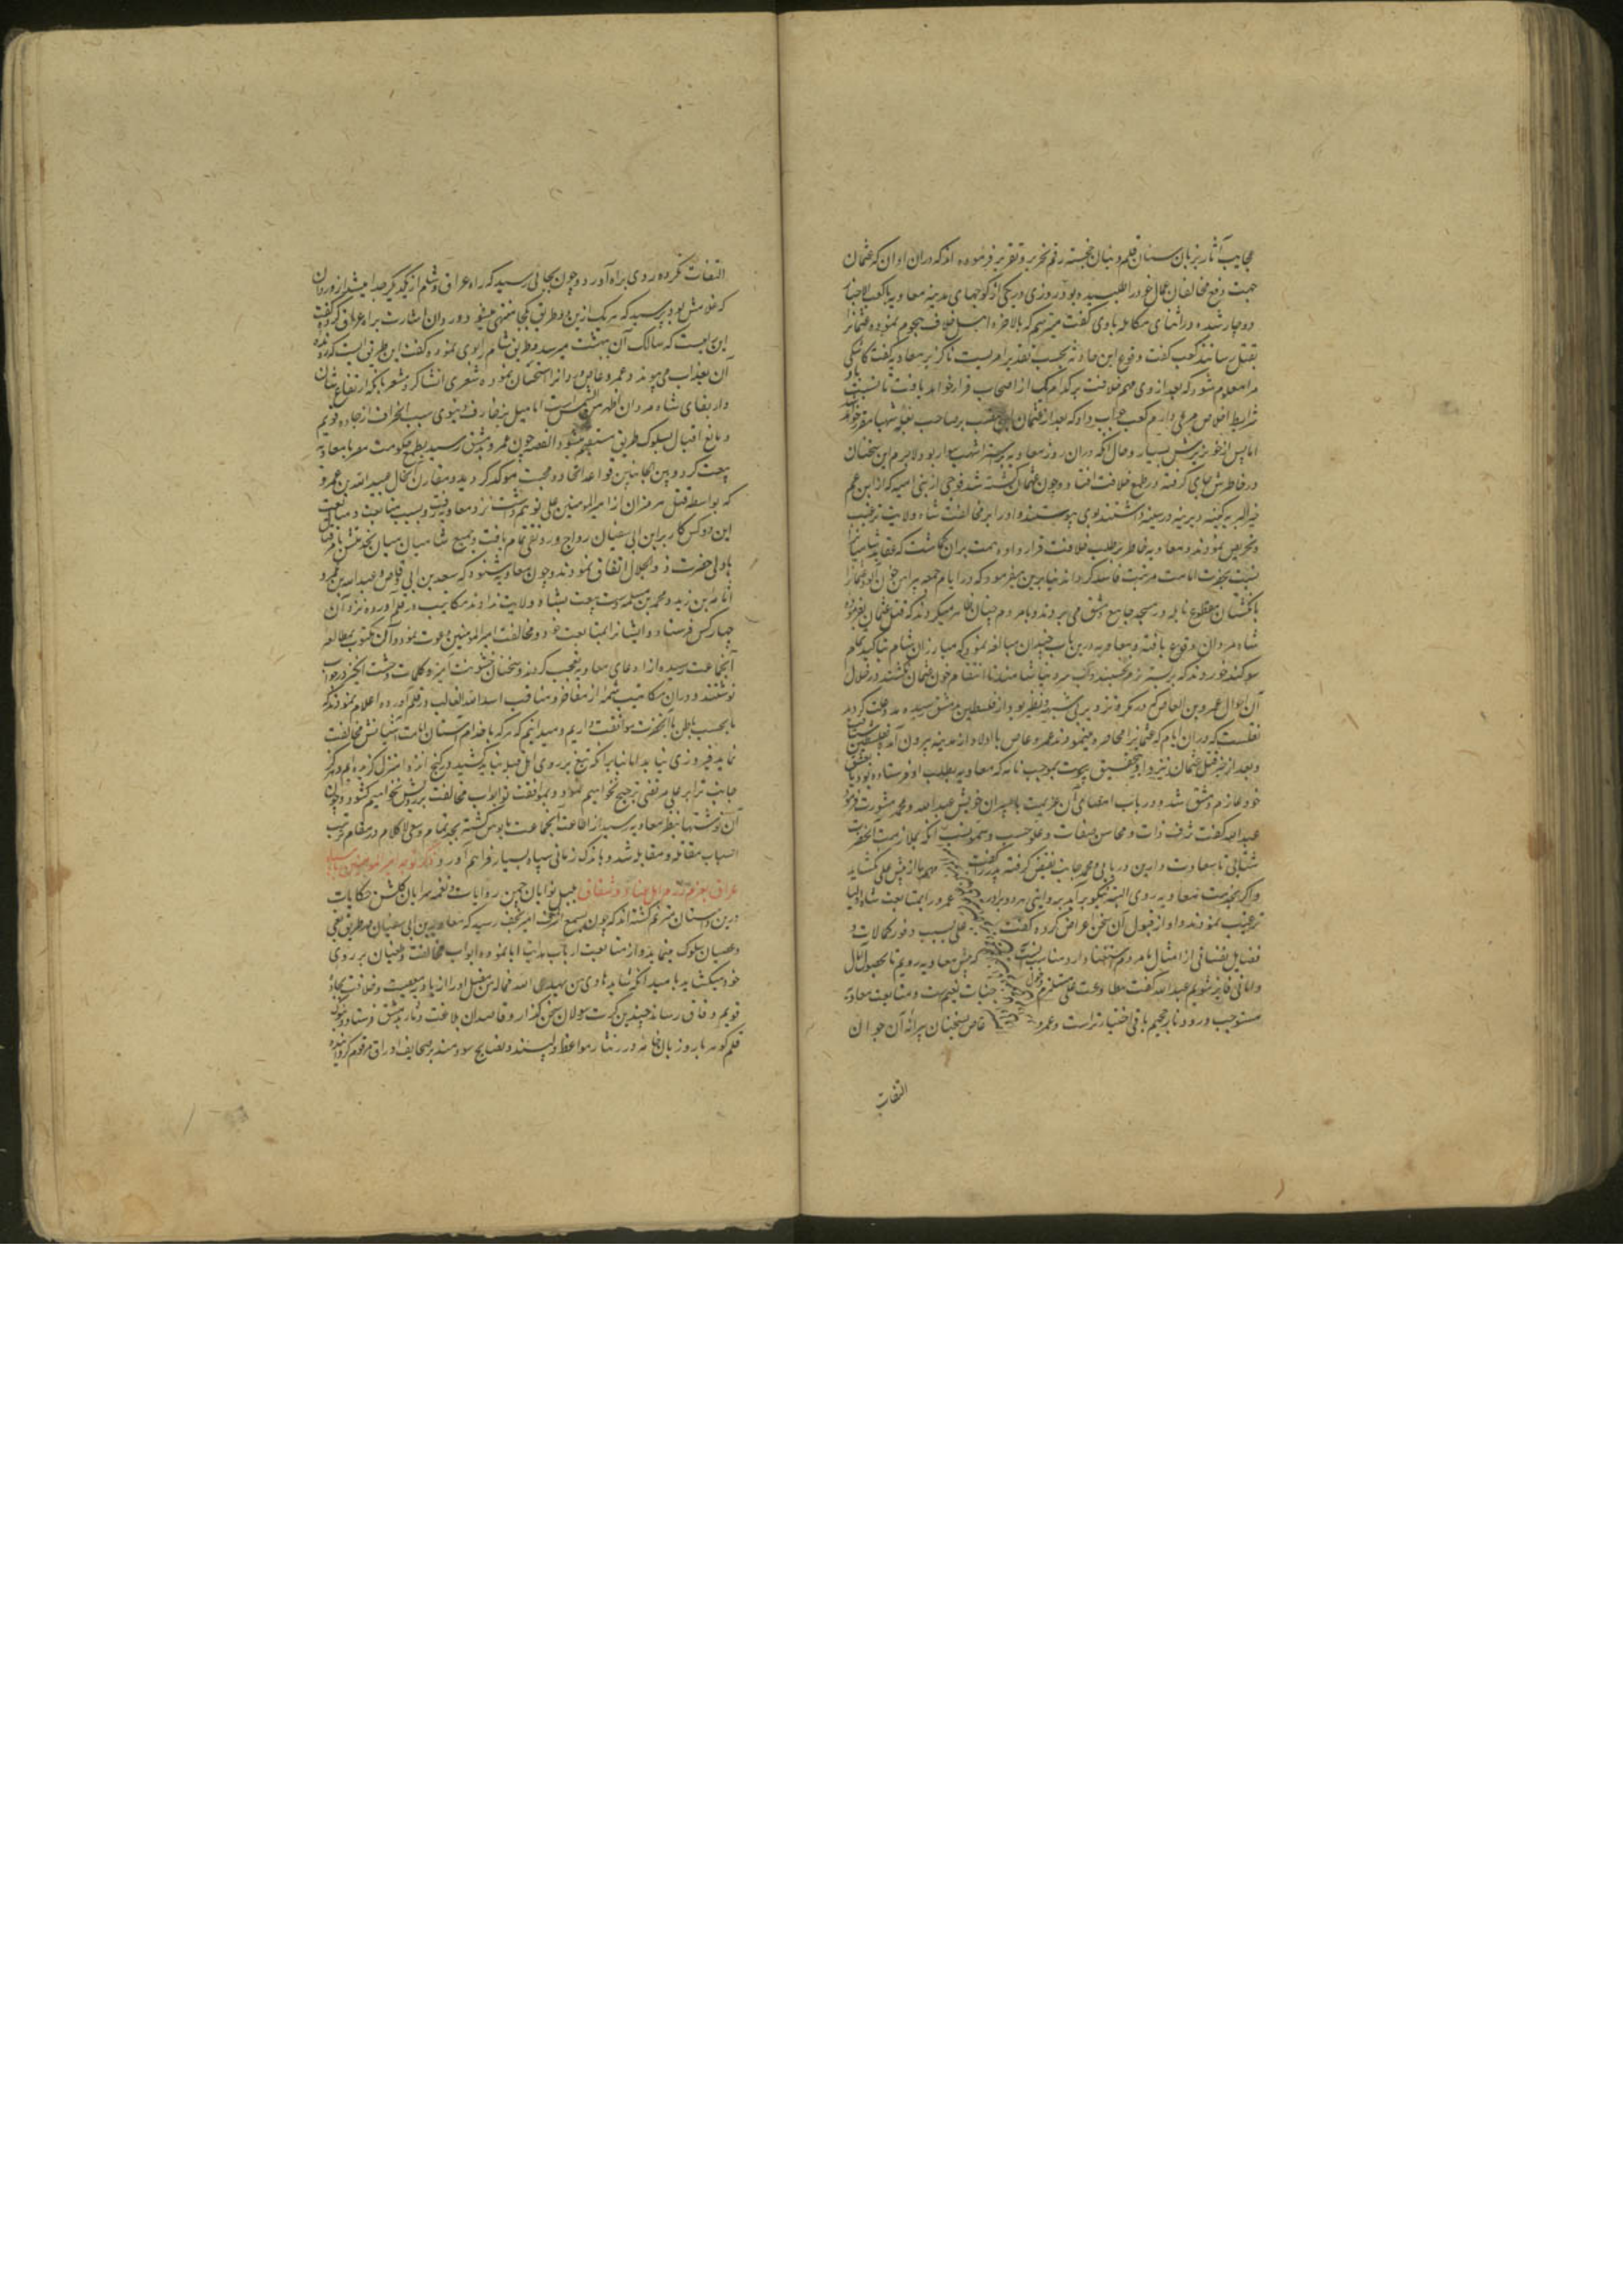 عجایب آثار بزبان سنان قلم و بنان خجسته رقم تحریر و تقریر فرموده اند که دران اوان که عثمان
جهت دفع مخالفان عمال خود را طلبیده بود روزی در یکی از کوچهای مدینه معاویه با کعب الاحبار
دوچار شده در اثنای مکالمه باوی گفت میترسم که بالاخره اهل خلاف هجوم نموده عثمانرا
بقتل رسانند کعب گفت وقوع این حادثه بحسب تقدیر امریست ناگزیر معاویه گفت کاشکی
مرا معلوم شود که بعد از وی مهم خلافت بر کدام یک از اصحاب قرار خواهد یافت تا نسبت باو
شرایط اخلاص مرعی دارم کعب جواب داد که بعد از عثمان این منصب بر صاحب بغله شهبا مقرر خواهد شد
اما پس از خونریزش بسیار و حال آنکه دران روز معاویه بر استر اشهب سوار بود لاجرم این سخنان
در خاطرش جای گرفته در طمع خلافت افتاد و چون عثمان کشته شد فوجی از بنی امیه که از ابن عم
خیر البریه کینه دیرینه در سینه داشتند بوی پیوستند و او را بر مخالفت شاه ولایت ترغیب
و تحریص نمودند و معاویه خاطر بر طلب خلافت قرار داده همت بران گماشت که عقاید شامیانرا
نسبت بحضرت امامت مرتبت فاسد گرداند بنابرین میفرمود که در ایام جمعه پیراهن خون آلود عثمانرا
با انگشتان مقطوع نایله در مسجد جامع دمشق می بردند و بامردم چنان ظاهر میکردند که قتل عثمان بفرموده
شاه مردان وقوع یافته و معاویه درین باب چندان مبالغه نمود که مبارزان شام بتاکید تمام
سوگند خوردند که بر بستر نرم نخسپند و آب سرد نیاشامند تا انتقام خون عثمان نکشند در خلال
آن احوال عمرو بن العاص که در مکر و تزویر بی شبیه و نظیر بود از فلسطین بدمشق رسیده
نقلست که دران ایام که عثمانرا محاصره مینمودند عمرو عاص با اولاد از مدینه بیرون آمده بفلسطین شتافت
و بعد از خبر قتل عثمان نزد او بتحقیق پیوست بموجب نامه که معاویه بطلب او فرستاده بود
خود عازم دمشق شده در باب امضای آن عزیمت با پسران خویش عبدالله و محمد مشورت فرمود
عبدالله گفت شرف ذات و محاسن صفات و علو حسب و سمو نسب آنکه بملازمت آنحضرت
شتابی تا سعادت دارین دریابی و محمد جانب نقیض گرفته پدر را گفت مهم ما از پیش علی نگشاید
واگر بخدمت معاویه روی البته نیکو برآید عمرو را بمتابعت شاه اولیا
ترغیب نمودند و او از قبول آن سخن اعراض کرده گفت علی بسبب وفور کمالات و
فضایل نفسانی از امثال ما مردم استغنا دارد مناسب آنست که پیش معاویه رویم تا بحصول آمال
و امانی فایز شویم عبدالله گفت مطاوعت علی مستلزم دخول جنات نعیمست و متابعت معاویه
مستوجب ورود نار جحیم باقی اختیار تراست و عمرو عاص بسخنان پیرانه آن جوان
التفات
التفات نکرده روی براه آورد و چون بجائی رسید که راه عراق و شام از یکدیگر جدا میشد از وردان
که غلامش بود پرسید که هر یک ازین دو طریق بکجا منتهی میشود وردان اشارت براه عراق کرد و گفت
این راهیست که سالک آن ببهشت میرسد و بطریق شام ایمای نموده گفت این طریق ایست که رونده
آن بعذاب می پیوندد و عمرو عاص وردانرا استحسان نموده شعری انشا کرد
و مانع اقبال بسلوک طریق مستقیم میشود القصه چون عمرو بدمشق رسید بطمع حکومت مصر با معاویه
بیعت کرد و بین الجانبین قواعد اتحاد و محبت موکد گردید و مقارن آنحال عبیدالله بن عمر
که بواسطه قتل هرمزان از امیرالمومنین علی توهم داشت نزد معاویه رفت و بسبب متابعت و مبایعت
این دو کس کار پسر ابی سفیان رواج و رونق تمام یافت و جمیع شامیان میان بخدمتش
با ولی حضرت ذوالجلال اتفاق نمودند و چون معاویه شنود که سعد بن ابی وقاص و عبدالله بن عمر و
اسامه بن زید و محمد بن مسلمه دست بیعت بشاه ولایت نداده اند مکاتیب در قلم آورده نزد آن
چهار کس فرستاد و ایشانرا بمتابعت خود و مخالفت امیرالمومنین دعوت نمود و آن مکتوب بمطالعه
آنجماعت رسیده از ادعای معاویه تعجب کردند و سخنان خشونت آمیز و کلمات وحشت انگیز در جواب
نوشتند و دران مکاتیب شمه از مفاخر و مناقب اسدالله الغالب در قلم آورده اعلام نمودند که
ما بحسب باطن با آنحضرت موافقت داریم و میدانیم که هر که با خدام آستان امامت آشیانش مخالفت
نماید فیروزی نیابد اما بنابر آنکه تیغ بر روی اهل قبله نباید کشید در کنج انزوا منزل گزیده ایم و هرگز
جانب ترا بر علی مرتضی ترجیح نخواهیم نمود و بموافقت تو ابواب مخالفت بر رویش نخواهیم گشود و چون
آن نوشتها بنظر معاویه رسید از اطاعت آنجماعت مایوس گشته بجد تمام و سعی لا کلام در مقام ترتیب
اسباب مقاتله و مقابله شد و باندک زمانی سپاه بسیار فراهم آورد
عراق بعزم رزم اهل عناد و شقاق بلبل نوایان چمن روایات و نغمه سرایان گلشن حکایات
درین داستان مترنم گشته اند که چون بسمع اشرف امیر نجف رسید که معاویه بن ابی سفیان در طریق بغی
و عصیان سلوک مینماید و از متابعت ارباب هدایت ابا نموده ابواب مخالفت و طغیان بر روی
خود میکشاید بامید آنکه شاید هادی من یهدی الله فماله من مضل او را از بادیه معصیت و خلافت بجاده
قویم وفاق رساند چندین کرت رسولان سخن گذار و قاصدان بلاغت دثار بدمشق فرستاد
قلم گوهر بار و زبان خامه درر نثار مواعظ دلپسند و نصایح سودمند بر صحایف اوراق مرقوم گردانیده